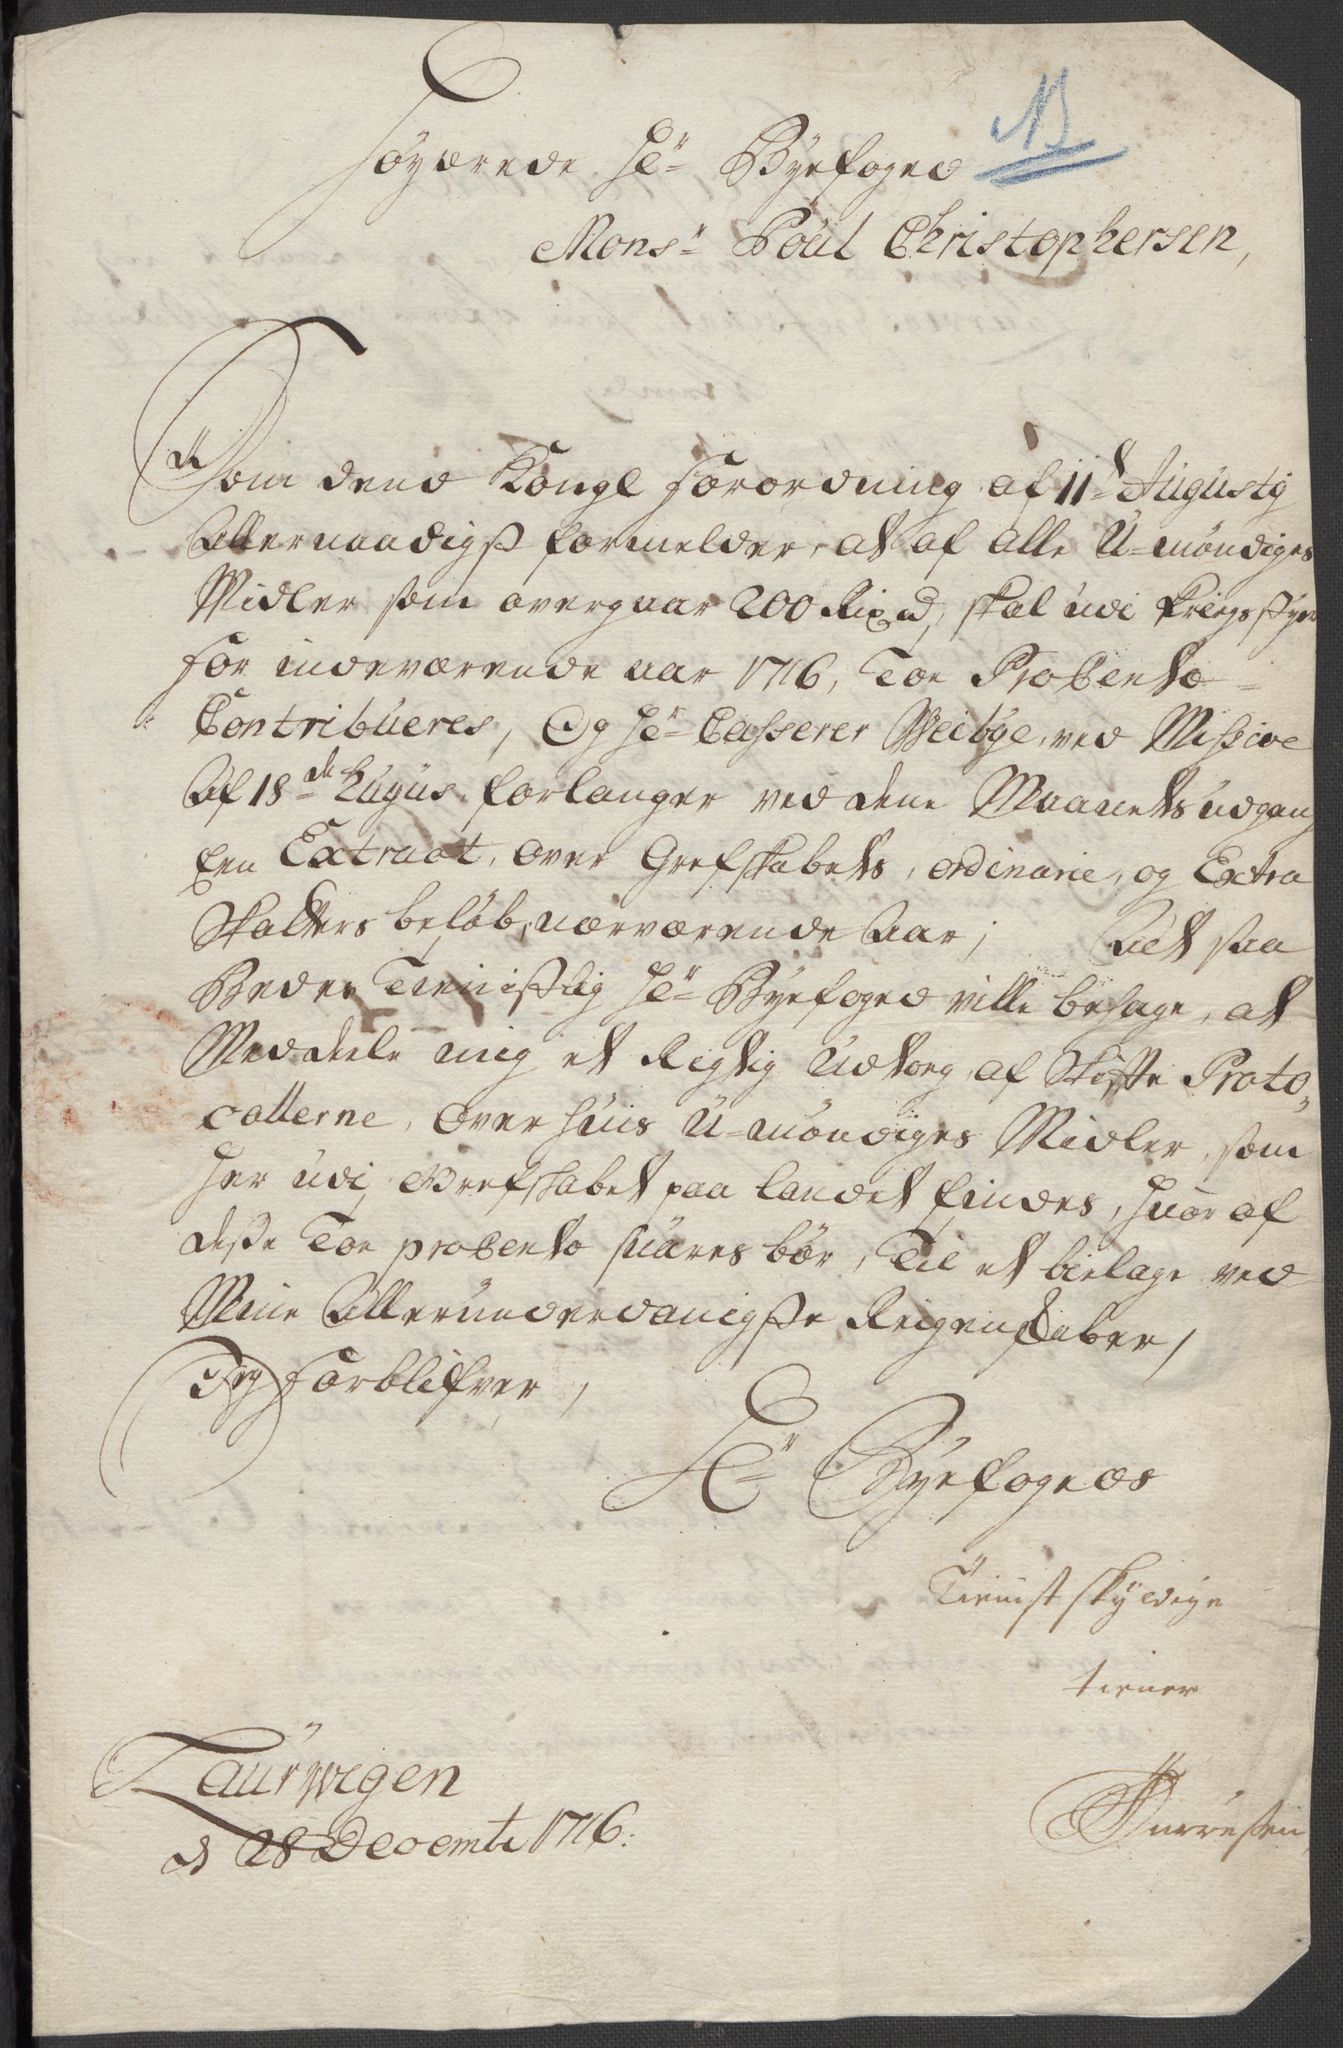 Høyærede Hr Byefoged
NB
Monsr Poul Christophersen,
Som dend Kongl Forordning af 11t Augustij
Allernaadigst formelder, at af alle U-mÿndiges
Midler som overgaar 200 Rixd, skal udi Kriegsstÿr
for indeværende aar 1716, Toe ProCento
Contribueres, Og Hr Casserer Weibÿe, ved Missive
Af 18de hujus forlanger ved dene Maanets udgang
Een Extract, over Grefskabets, ordinarie, og Extra
Skatters beløb, nærværende Aar; Alt saa
Beder Tienistlig Hr Byefoged ville behage, at
Meddeele mig et Rigtig Udtog af Skifte Proto,
collerne, Over huis U-mÿndiges Midler, som
her udi Grefskabet paa landet findes, huor af
desse Toe proCento suares bør, Til et bielage ved
Mine Allerunderdanigste Reigenskaber,
Jeg Forblifver,
Hr Byefogeds
Tienstskÿldige
tiener
Laurwigen
d 28 Decembr 1716.